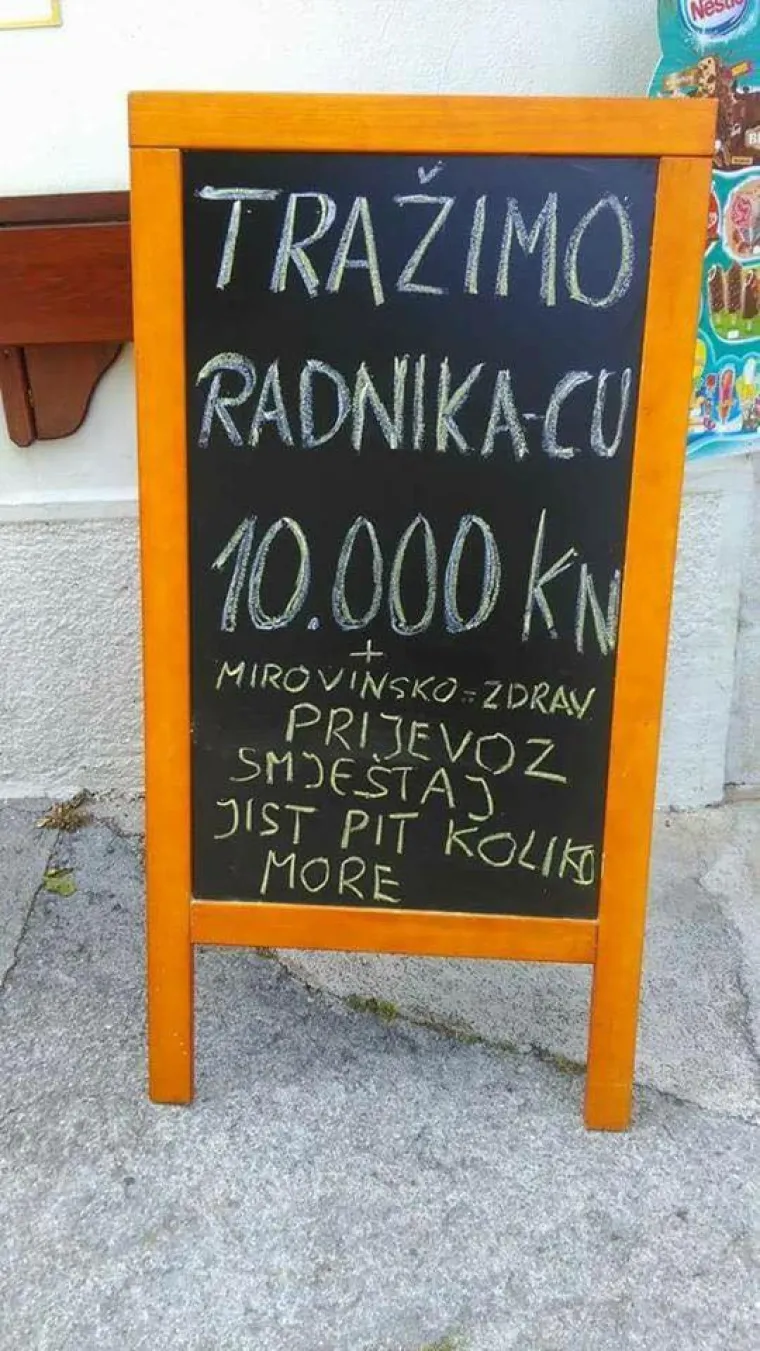 Nestlé
TRAŽIMO
RADNIKA-CU
10.000 KN
+
MIROVINSKO=ZDRAV
PRIJEVOZ
SMJEŠTAJ
JIST PIT KOLIKO
MORE